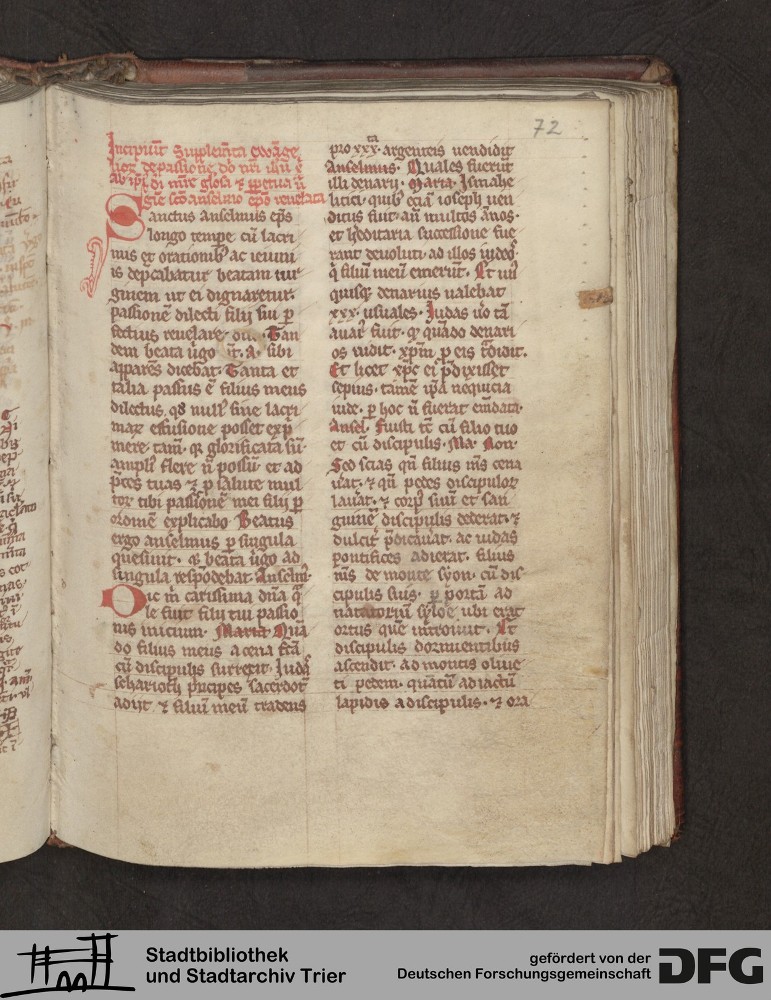 72
Incipiūt Suppleīta Ewāge
lioꝝ de passione dn̄i nr̄i ihū
Sanctus anselmus ep̄s
longo tempe cū lacri
mis et orationibꝰ ac ieiuni
is dep̄cabatur beatam uir
ginem ut ei dignaretur
passionē dilecti filij sui ꝑ
fectius reuelare. Tan
dem beata ūgo sibi
apparēs dicebat. Tanta et
talia passus ē filius meus
dilectus. qđ nullꝰ sine lacri
maꝝ effusione posset exp̄
mere. tam̄. qꝛ glorificata sū.
ampliꝰ flere n̄ possū et ad
p̄ces tuas ⁊ ꝓ salute mul
toꝝ tibi passionē mei filij ꝑ
ordinē explicabo. Beatus
ergo anselmus ꝑ singula
quesiuit. beata ūgo ad
singula respōdebat. Anselmꝰ.
Dic m̄ carissima dn̄a q̄
le fuit filij tui passio
nis inicium. Maria Quā
do filius meus a cena fc̄a
cū discipulis surrexit. Judas
schariotħ p̄ncipes sacerdotū
adijt ⁊ filiū meū tradens
pro xxx. argenteis uendidit
Anselmus. Quales fuerūt
illi denarij. Maria. Ismahe
litici. quibꝰ eciā ioseph uen
ditus fuit. an̄ multos ānos.
et heditaria successione fue
rant deuoluti. ad illos iudeos.
q̄ filiū meū emerūt. Et unꝰ
quisqꝫ denarius ualebat
xxx. usuales. Judas ūo tā
auarꝰ fuit. qꝛ quādo denari
os uidit. xp̄m ꝓ eis t̄didit.
Et licet xp̄c ei p̄dixisset
sepius. tamē ip̄a nequicia
iude. ꝑ hoc n̄ fuerat emēdata.
Ansel. Fuisti tc̄ cū filio tuo
et cū discipulis. Ma. Non.
Sed scias qn̄ filius m̄s cena
uat. ⁊ qn̄ pedes discipuloꝝ
lauat. ⁊ corpꝰ suū et san
guinē discipulis dederat. ⁊
dulcit̄ p̄dicauat. ac iudas
pontifices adierat. filius
m̄s de monte syon. cū dis
cipulis suis. ꝑ portā ad
natatoriū syloe ubi erat
ortus quē introiuit. Et
discipulis dormientibus
ascendit. ad montis oliue
ti pedem. quātū ad iactū
lapidis a discipulis. ⁊ ora
Stadtbibliothek
und Stadtarchiv Trier
gefördert von der
Deutschen Forschungsgemeinschaft
DFG